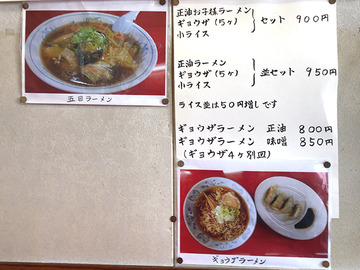 正油お子様ラーメン
ギョウザ(5ヶ) セット 900円
小ライス
正油ラーメン
ギョウザ(5ヶ) 並セット 950円
小ライス
ライス並は50円増しです
ギョウザラーメン 正油 800円
ギョウザラーメン 味噌 850円
(ギョウザ4ヶ別皿)
五目ラーメン
ギョウザラーメン